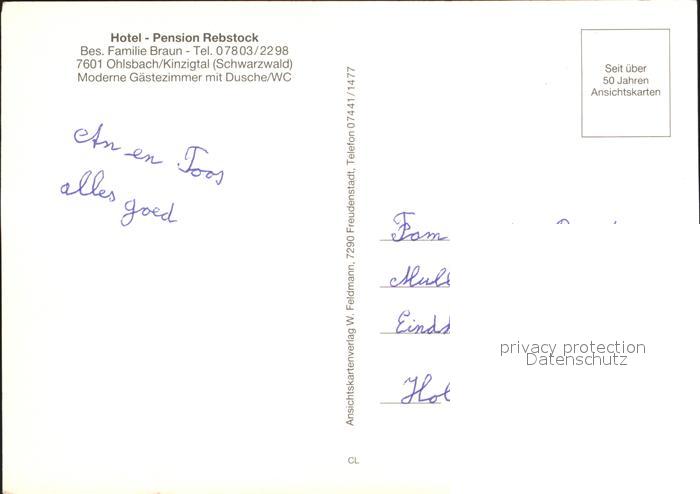 Hotel - Pension Rebstock
Bes. Familie Braun - Tel. 07803/2298
7601 Ohlsbach/Kinzigtal (Schwarzwald)
Moderne Gästezimmer mit Dusche/WC
An en Toos
alles goed
Ansichtskartenverlag W. Feldmann, 7290 Freudenstadt, Telefon 07441/1477
CL
Seit über
50 Jahren
Ansichtskarten
Fam
privacy protection
Datenschutz